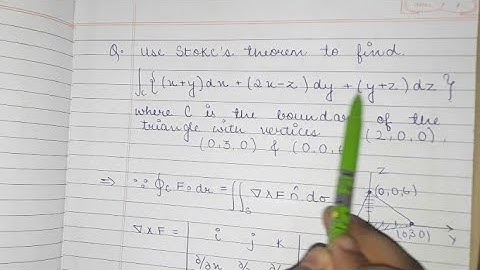 Q. Use Stokc's theorem to find.
∫c {(x+y)dx + (2x-z) dy + (y+z) dz}
where C is the boundary of the
triangle with vertices (2,0,0),
(0,3,0) & (0,0,6
⇒ ∵ ∮c F.dr = ∬s ∇×F n̂.dσ
Z
(0,0,6)
(0,3,0)
Y
∇×F = | i j k
∂/∂x ∂/∂y